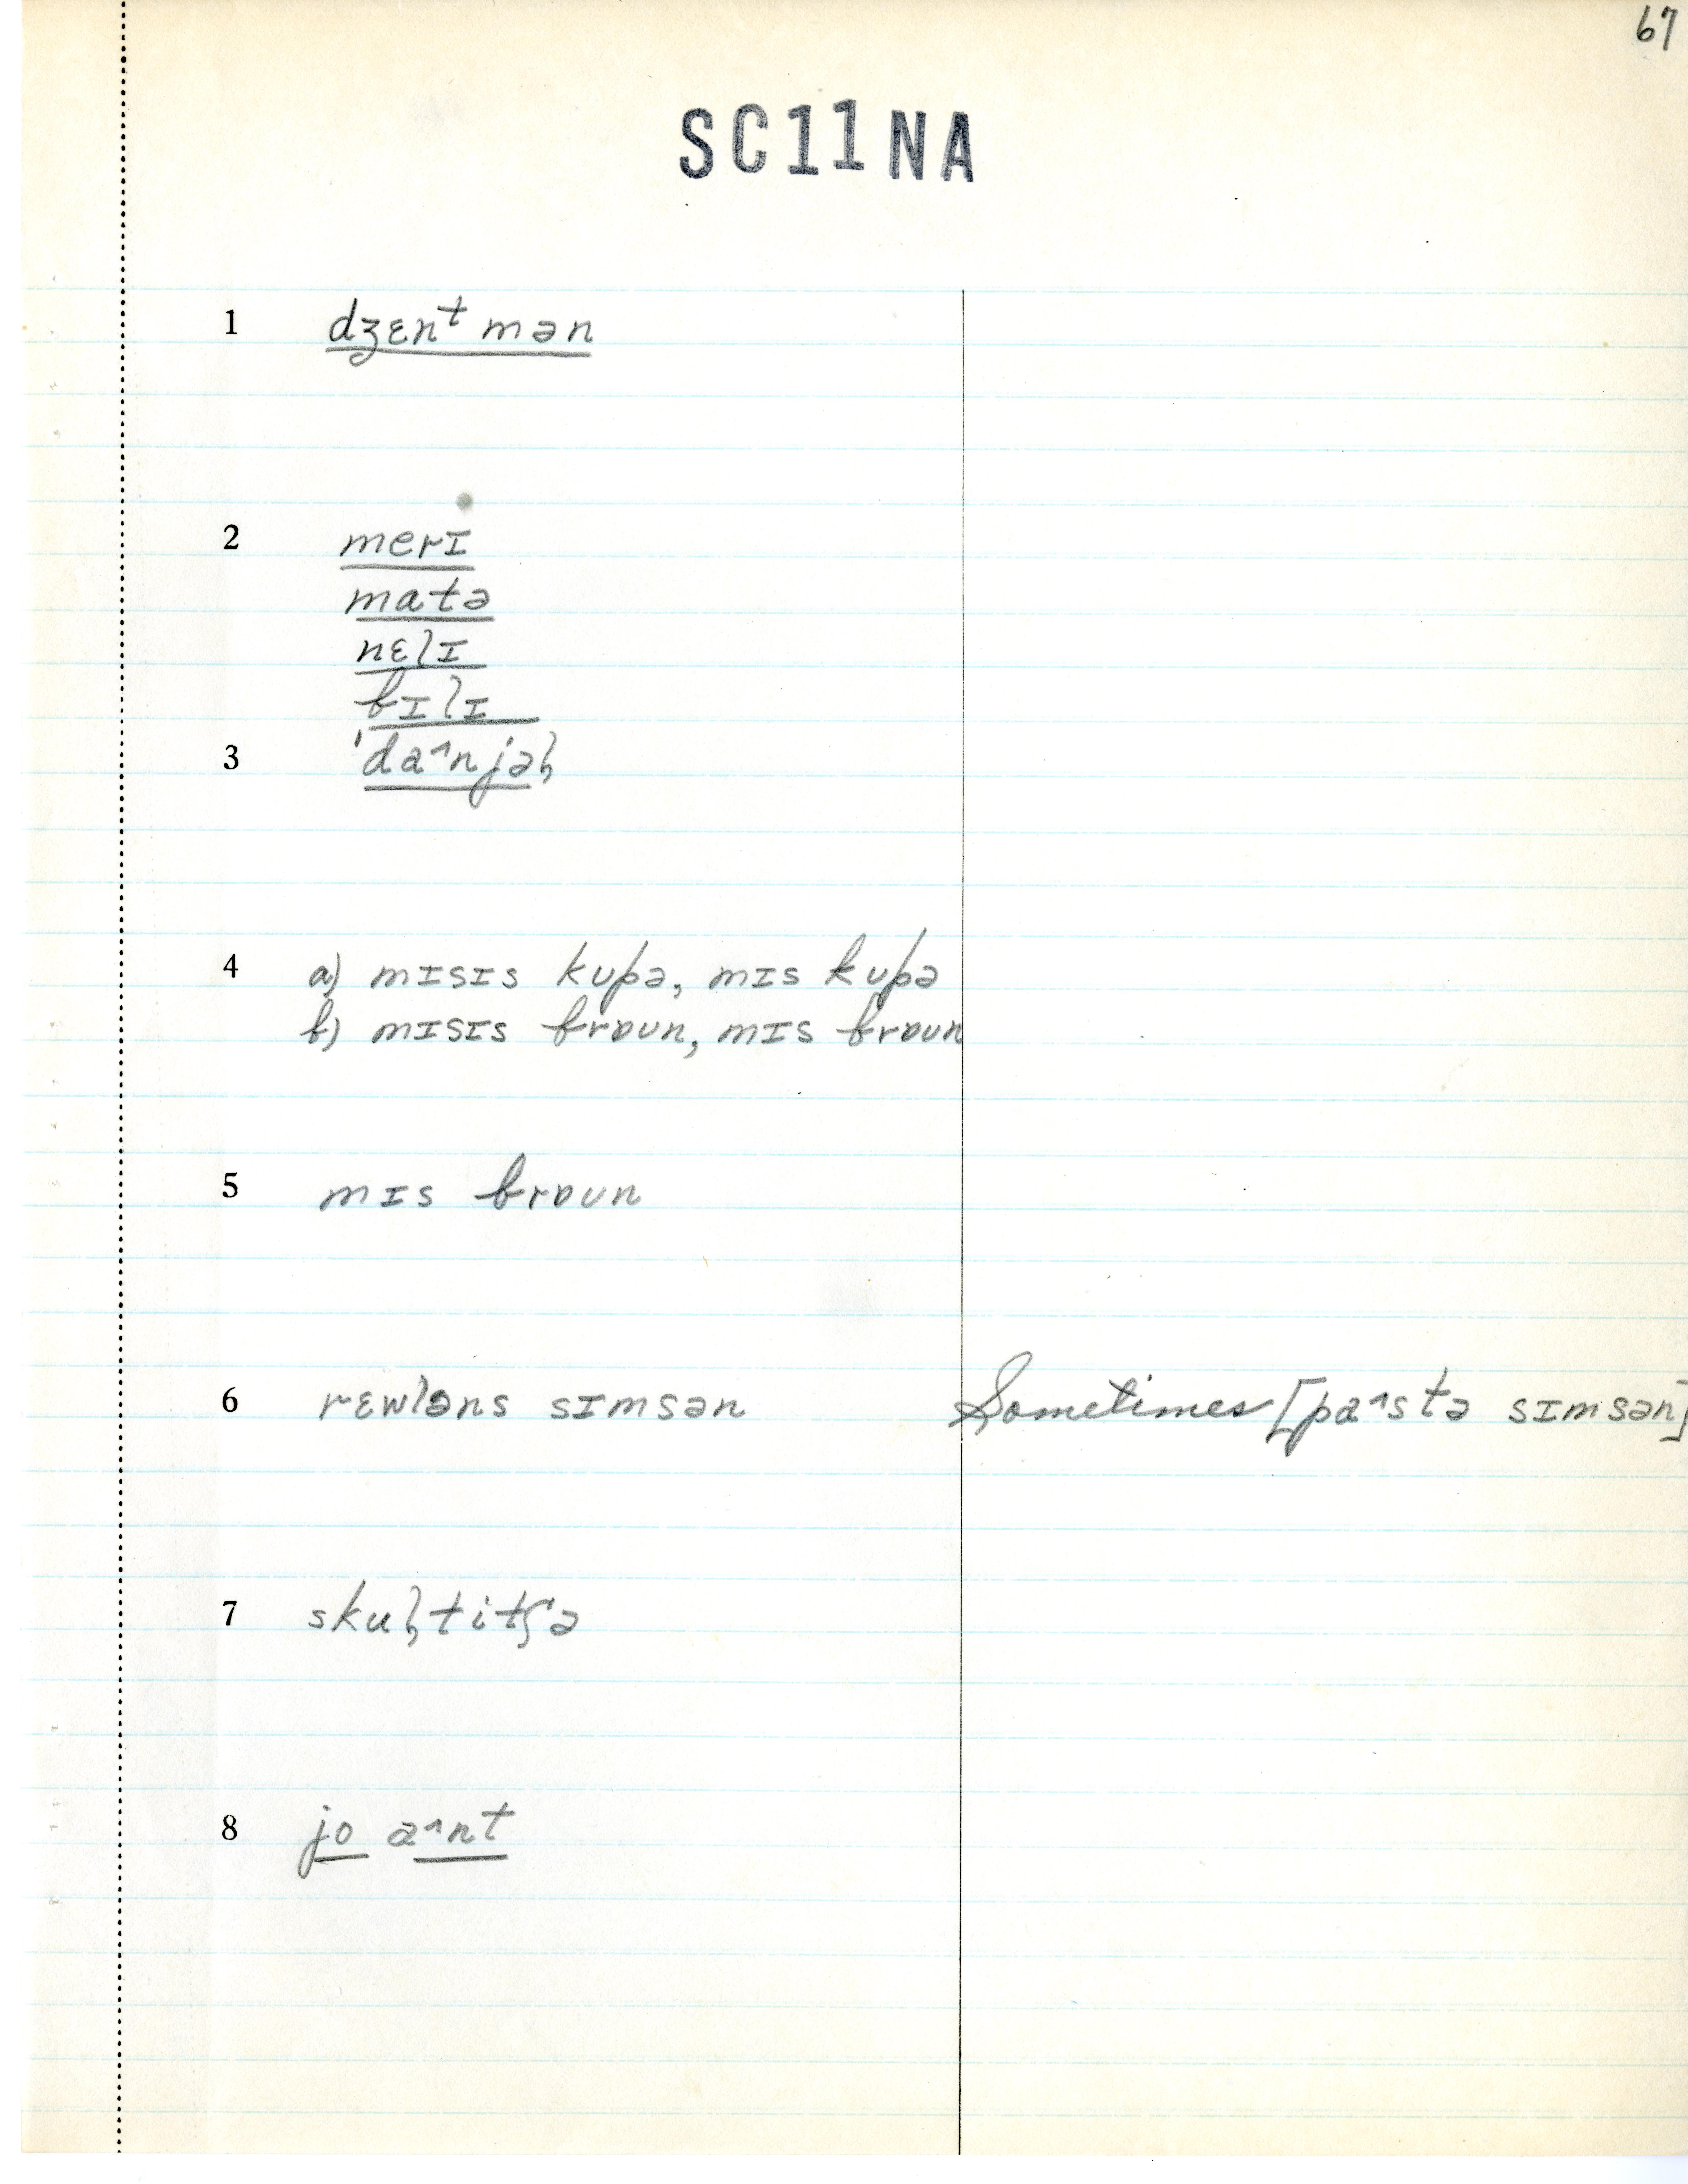 67
SC11NA
1 dʒɛnᵗmən
2 merɪ
matə
nɛlɪ
bɪlɪ
3 ˈda^njəl̥
4 a) mɪsɪs kupə, mɪs kupə
b) mɪsɪs brɒun, mɪs brɒun
5 mɪs brɒun
6 rɛwləns sɪmsən Sometimes [pa^stə sɪmsən]
7 skul̥titʃə
8 jo a^nt